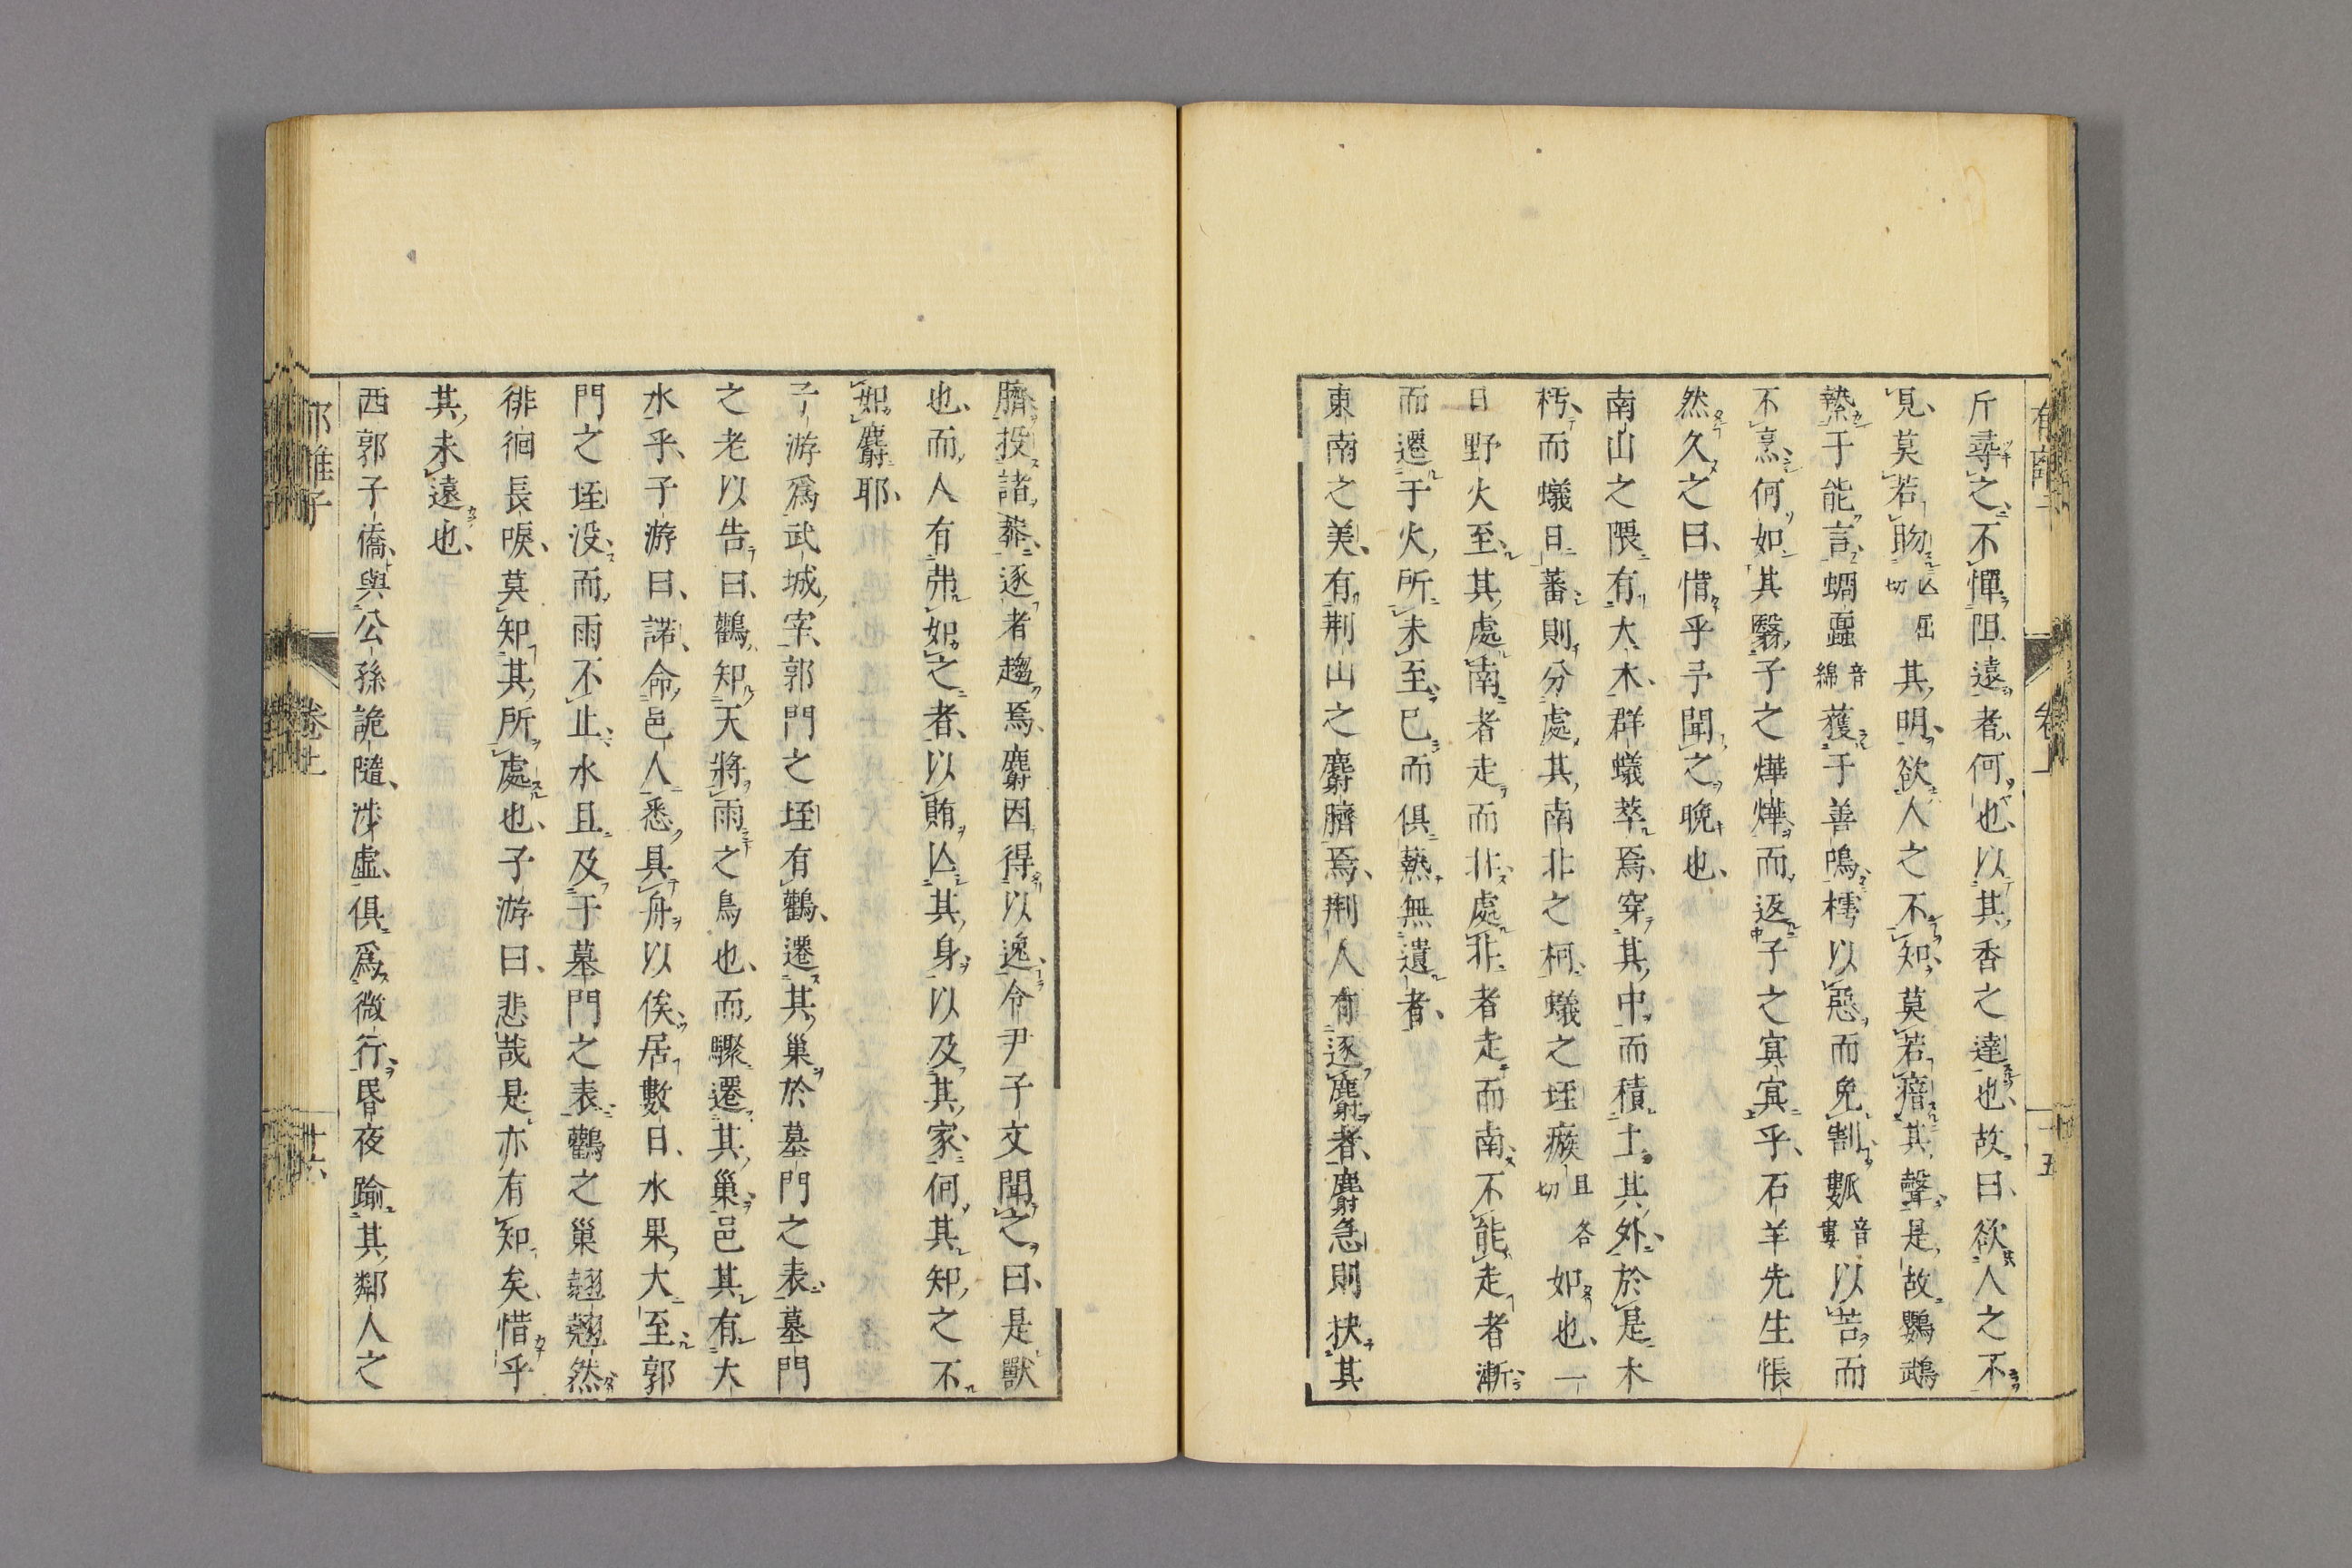 斤尋之不憚阻遠者何也以其香之達也故曰欲人之不
見莫若昒亾屈切其明欲人之不知莫若瘖其聲是故鸚鵡
縶于能言蜩蠠音綿獲于善鳴樗以惡而免割瓠音婁以苦而
不烹何如其翳子之燁燁而返子之㝠㝠乎石羊先生悵
然久之曰惜乎予聞之晩也
南山之隈有大木群蟻萃焉穿其中而積土其外於是木
朽而蟻日蕃則分處其南北之柯蟻之垤瘯且各切如也一
日野火至其處南者走而北處北者走而南不能走者漸
而遷于火所未至已而俱爇無遺者
東南之美有荆山之麝臍焉荆人有逐麝者麝急則抉其
臍投諸莽逐者趨焉麝因得以逸令尹子文聞之曰是獸
也而人有弗如之者以賄亾其身以及其家何其知之不
如麝耶
子游爲武城宰郭門之垤有鸛遷其巢於墓門之表墓門
之老以告曰鸛知天將雨之鳥也而驟遷其巢邑其有大
水乎子游曰諾命邑人悉具舟以俟居數日水果大至郭
門之垤没而雨不止水且及于墓門之表鸛之巢翹翹然
徘徊長唳莫知其所處也子游曰悲哉是亦有知矣惜乎
其未遠也
西郭子僑與公孫詭隨渉虛俱爲微行昏夜踰其鄰人之
卷上
十六